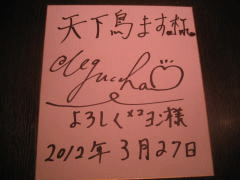 天下鳥ます。様
よろしく×2ヨン様
2012年3月27日